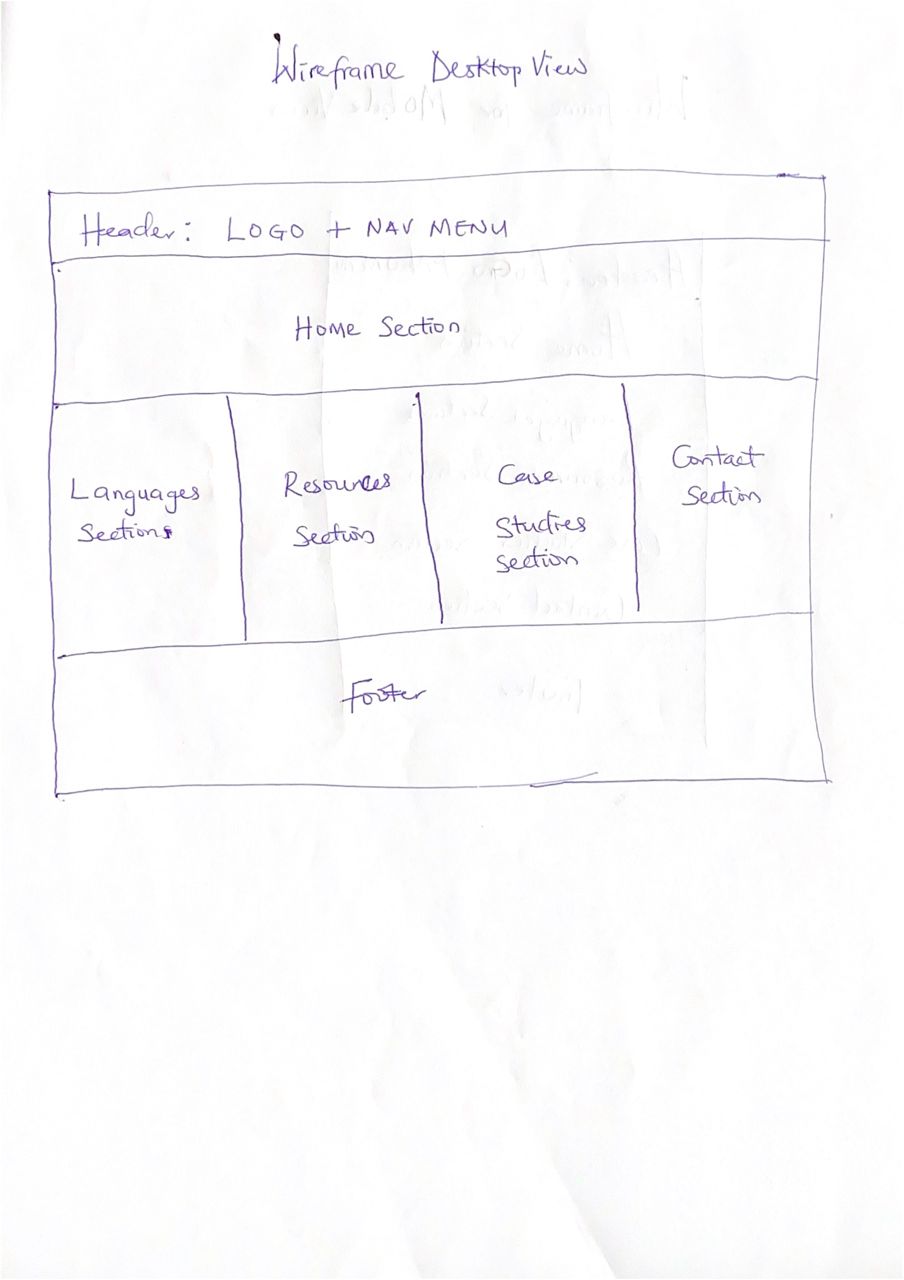 Wireframe Desktop View
Header: LOGO + NAV MENU
Home Section
Languages
Sections
Resources
Section
Case
Studies
Section
Contact
Section
Footer